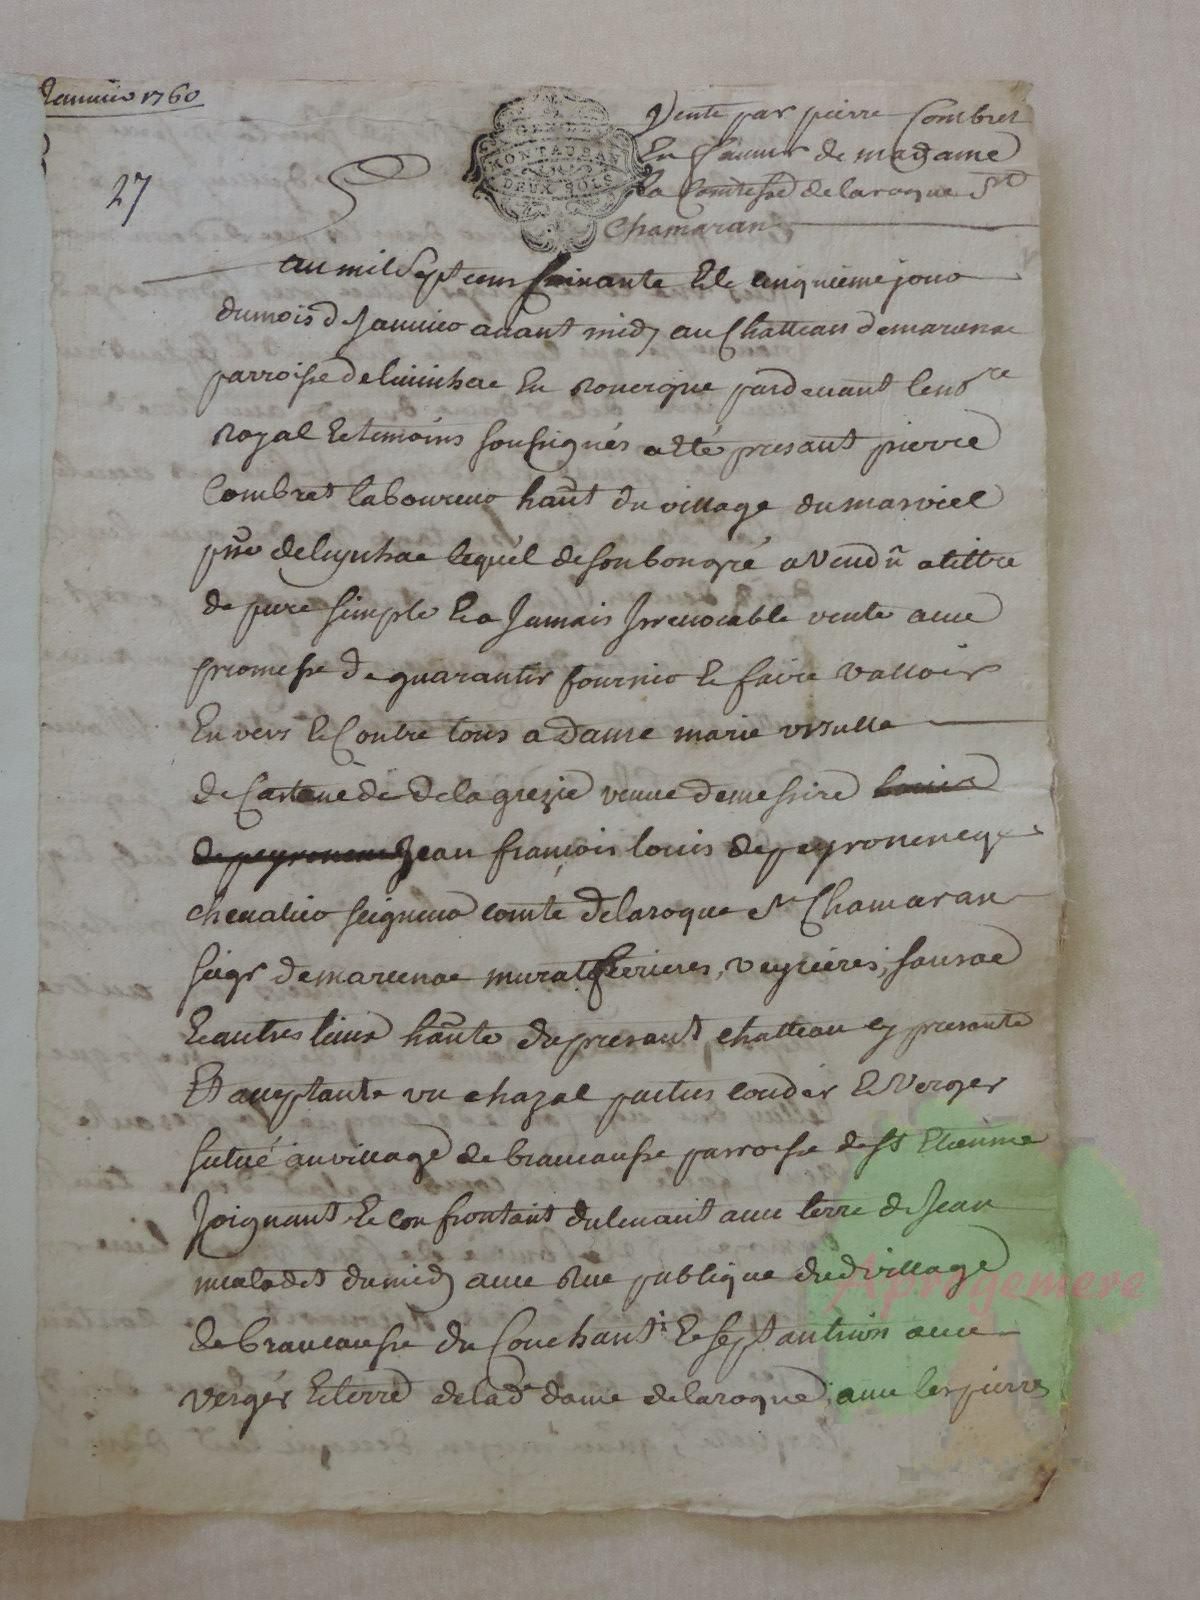 Janvier 1760
27
GEN. DE
MONTAUBAN
DEUX SOLS
Vente par pierre Combret
En faveur de madame
la Comtesse de laroque St
Chamaran
au mil sept cens soixante Et le cinquieme jour
du mois de Janvier avant midy au Chatteau de marcenac
parroisse de livinhac En Rouergue pardevant le nore
Royal Et temoins soussignés a Eté presant pierre
Combret laboureur hant du village du masviel
psse de livinhac lequel de son bon gré a Vendu a tiltre
de pure simple Et a Jamais Irrevocable vente avec
promesse de guarantir fournir Et faire valloir
Envers Et Contre tous a Dame marie ursulle
de Castanede de la grezie veuve de messire louis
de peyronenc Jean françois louis de peyronencq
chevalier seigneur comte de laroque St Chamaran
seigr de marcenac murat ferrieres, veyrieres, sansac
Et autres lieux hante du presant chatteau Cy presante
Et acceptante un chazal patus couder Et Verger
situé au village de brancausse parroisse de St Etienne
Joignant Et confrontant du levant avec terre de Jean
malodet du midy avec Rue publique dud village
de brancausse du Couchant Et septantrion avec
verger Et terre de lad dame de laroque, avec les pierres
Aprogemere